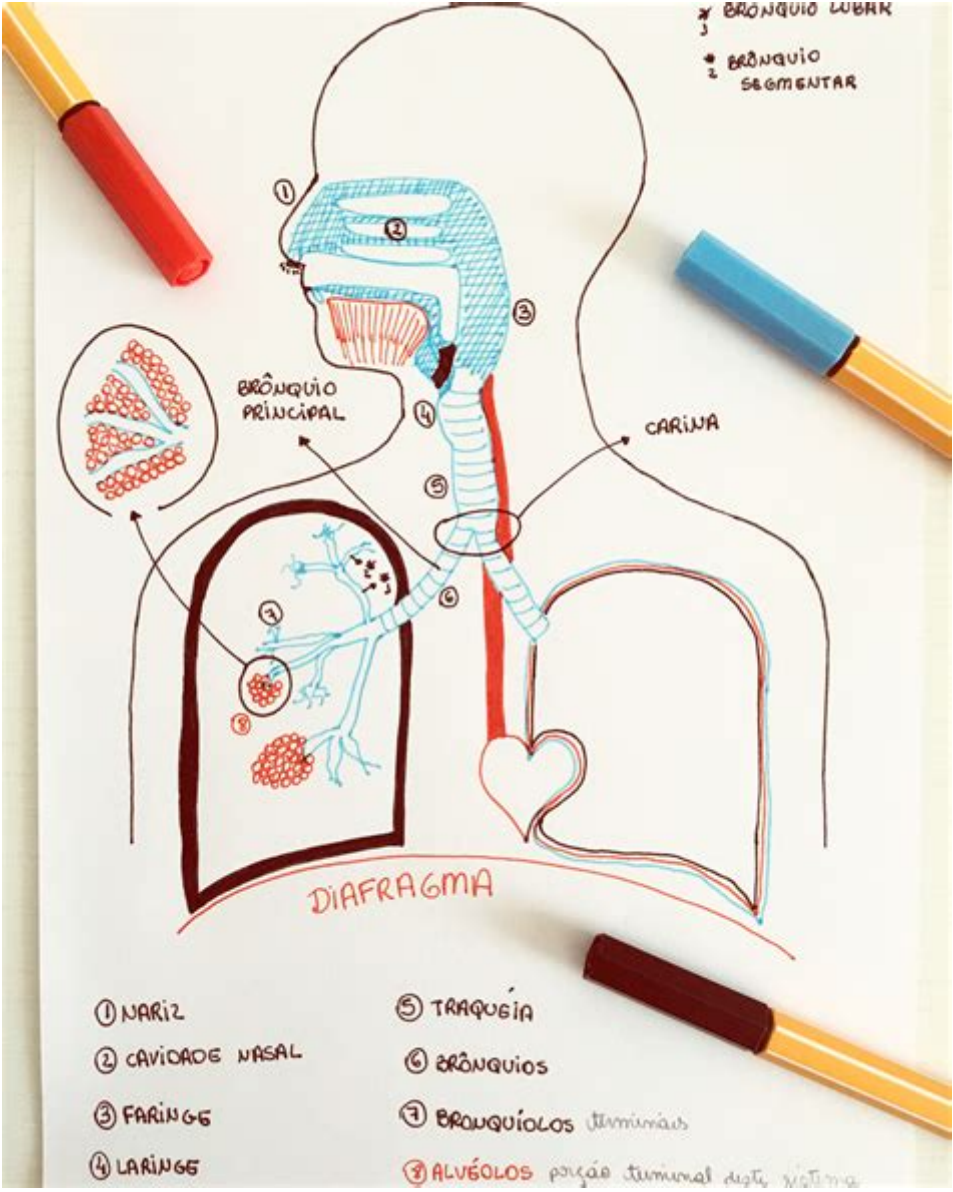 * BRÔNQUIO LOBAR
1
* BRÔNQUIO
2 SEGMENTAR
1
2
3
BRÔNQUIO
PRINCIPAL
4
CARINA
5
*
2
*
1
6
7
8
DIAFRAGMA
① NARIZ
② CAVIDADE NASAL
③ FARINGE
④ LARINGE
⑤ TRAQUEÍA
⑥ BRÔNQUIOS
⑦ BRONQUÍOLOS terminais
⑧ ALVÉOLOS porção terminal deste sistema